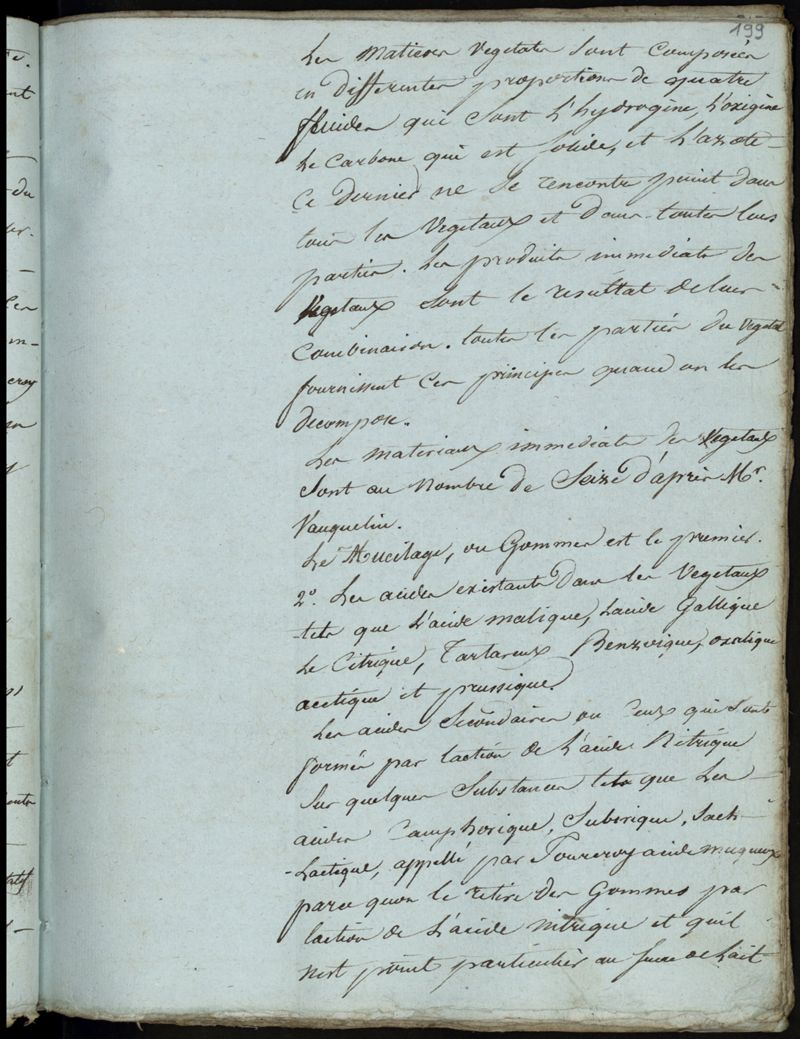 199
Les Matieres Vegetales sont Composées
en differentes proportions de quatre
fluides qui sont L'hydrogene, L'oxigene
Le Carbone qui est solide, et L'azote -
Ce dernier ne se rencontre point dans
tous les Vegetaux et dans toutes leurs
parties. Les produits immediats des
Vegetaux sont le resultat de leur
Combinaison. toutes les parties du Vegetal
fournissent Ces principes quand on les
decompose.
Les materiaux immediats des Vegetaux
sont au Nombre de Seize d'après Mr.
Vauquelin.
Le Mucilage, ou Gommes est le premier.
2o. Les acides existants dans les Vegetaux
tels que L'acide malique, Lacide Gallique
Le Citrique, Tartareux Benzoique, oxalique
acetique et prussique.
Les acides Secondaires ou Ceux qui sont
formés par laction de L'acide Nitrique
Sur quelques Substances tels que Les
acides Camphorique, Suberique, Sach-
-Lactique, appellé par Fourcroy acide muqueux
parce quon le retire des Gommes par
laction de L'acide nitrique et quil
nest point particulier au sucre de Lait